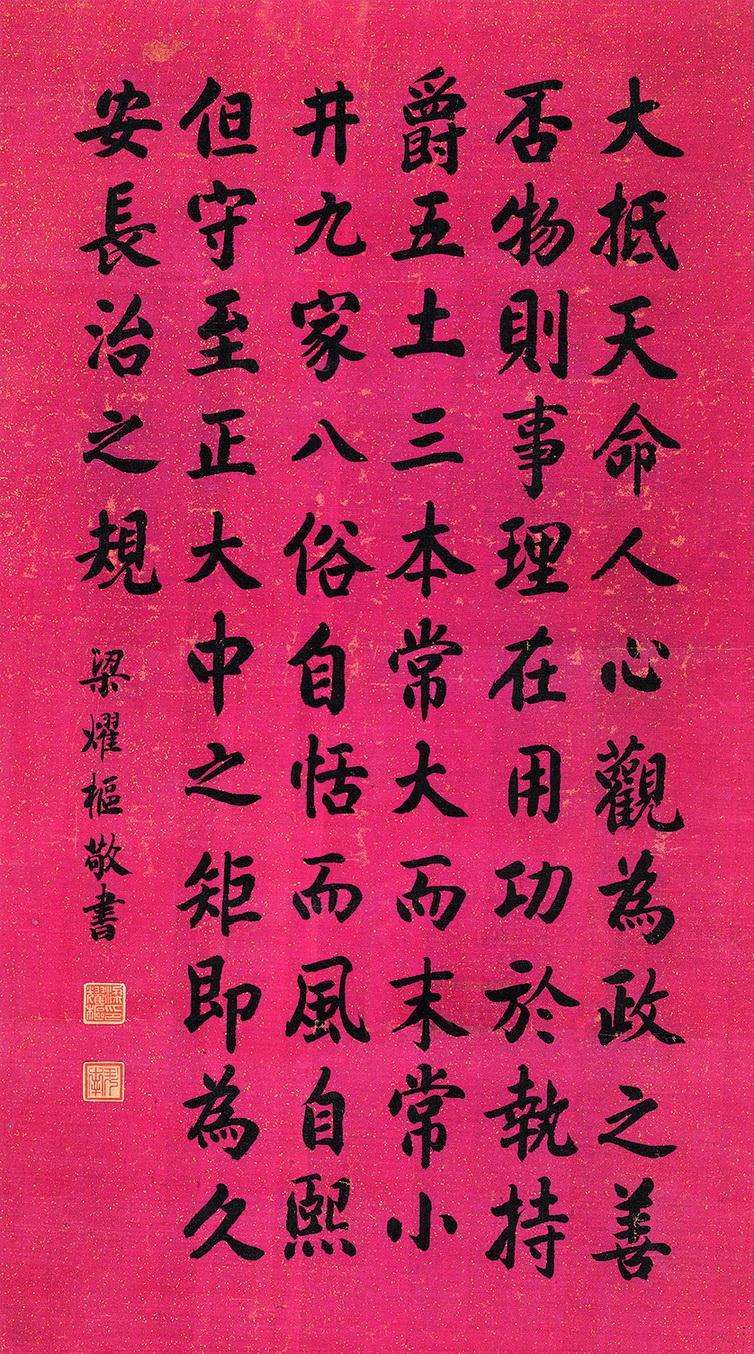 大抵天命人心觀為政之善
否物則事理在用功於執持
爵五土三本常大而末常小
井九家八俗自恬而風自熙
但守至正大中之矩即為久
安長治之規
梁耀樞敬書